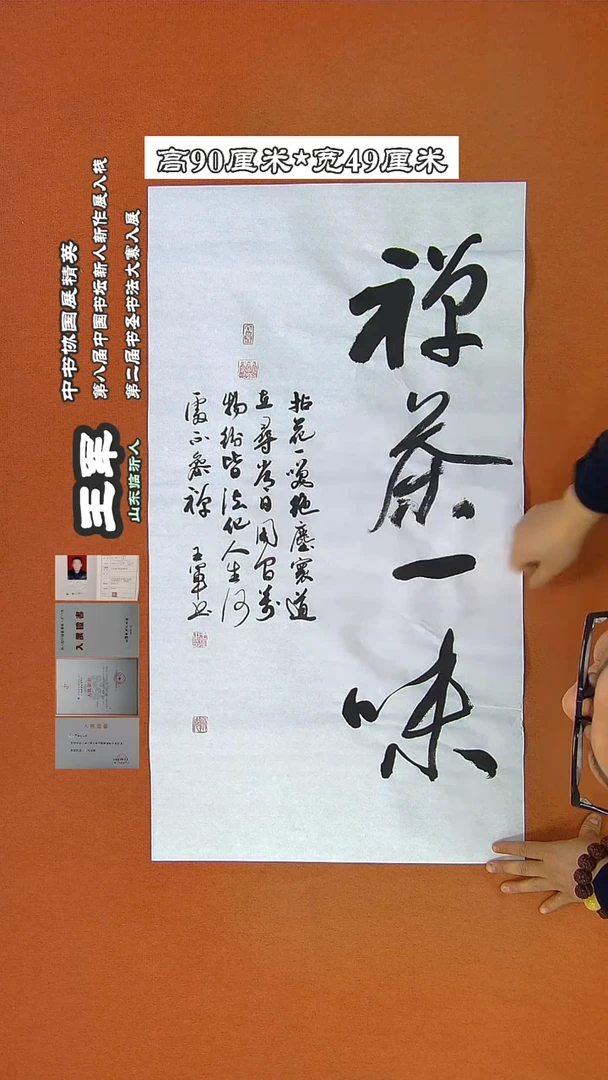 高90厘米*宽49厘米
中书协国展精英
第八届中国书坛新人新作展入栈
第二届书圣书法大赛入展
王军
山东临沂人
入展證書
禅茶一味
拈花一笑绝塵寰道
在尋常日用间萬
物纷皆法化人生何
處不參禅 王軍书